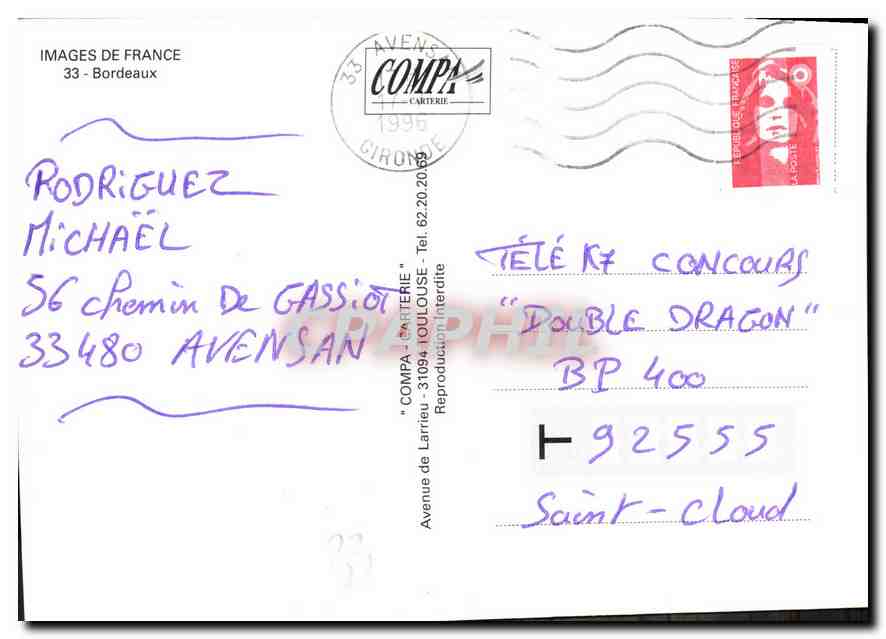 IMAGES DE FRANCE
33 - Bordeaux
33 AVENSAN
1996
GIRONDE
COMPA
CARTERIE
REPUBLIQUE FRANÇAISE
LA POSTE
RODRiGUEZ
MiCHAËL
56 chemin De GASSiOT
33480 AVENSAN
" COMPA - CARTERIE "
Avenue de Larrieu - 31094 TOULOUSE - Tel. 62.20.20.69
Reproduction Interdite
TÉLÉ K7 CONCOURS
"DOUBLE DRAGON"
BP 400
92555
Saint-Cloud
CPAPHIL